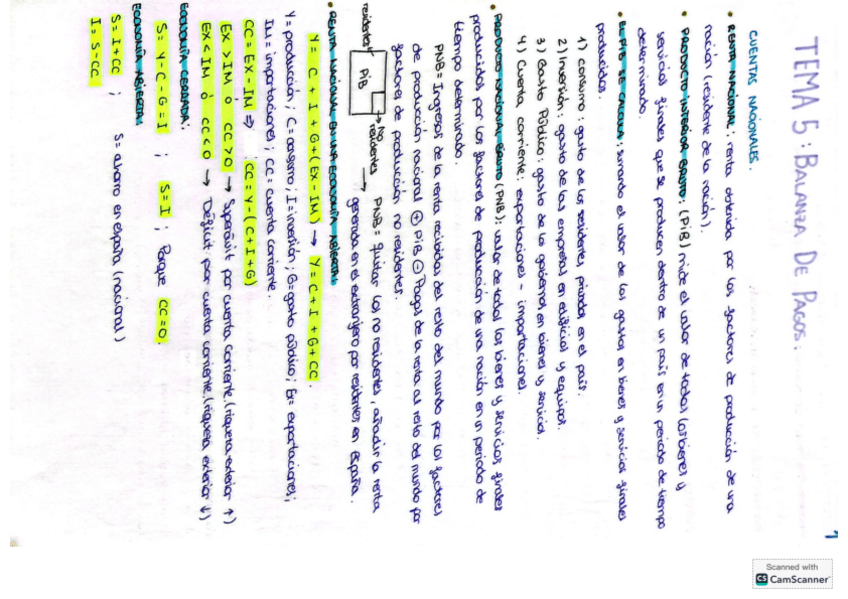 1
TEMA 5: BALANZA DE PAGOS.
CUENTAS NACIONALES.
• RENTA NACIONAL: renta obtenida por los factores de producción de una
nación (residente de la nación).
• PRODUCTO INTERIOR BRUTO: (PiB) mide el valor de todos los bienes y
servicios finales que se producen dentro de un país en un periodo de tiempo
determinado.
• EL PIB SE CALCULA: sumando el valor de los gastos en bienes y servicios finales
producidos.
1) consumo: gasto de los residentes privados en el país.
2) Inversión: gasto de las empresas en edificios y equipos.
3) Gasto Público: gasto de los gobiernos en bienes y servicios.
4) Cuenta corriente: exportaciones - importaciones.
• PRODUCTO NACIONAL BRUTO (PNB): valor de todos los bienes y servicios finales
producidos por los factores de producción de una nación en un periodo de
tiempo determinado.
PNB = Ingresos de la renta recibidos del resto del mundo por los factores
de producción nacional ⊕ PiB ⊖ Pagos de la renta al resto del mundo por
factores de producción no residentes.
residentes
PiB
→ No residentes
→ PNB = quitar los no residentes, añadir la renta
generada en el extranjero por residentes en España.
• RENTA NACIONAL EN UNA ECONOMÍA ABIERTA:
Y = C + I + G + (EX - IM) → Y = C + I + G + CC.
Y = producción; C = consumo; I = inversión; G = gasto público; EX = exportaciones;
IM = importaciones; CC = cuenta corriente.
CC = EX - IM ⇒ ; CC = Y - (C + I + G)
EX > IM ó CC > 0 → Superávit por cuenta corriente. (riqueza exterior ↑)
EX < IM ó CC < 0 → Déficit por cuenta corriente. (riqueza exterior ↓)
ECONOMÍA CERRADA:
S = Y - C - G = I ; S = I ; Porque CC = 0.
ECONOMÍA ABIERTA:
S = I + CC ; S = ahorro en España (nacional)
I = S - CC.
Scanned with
CS CamScanner